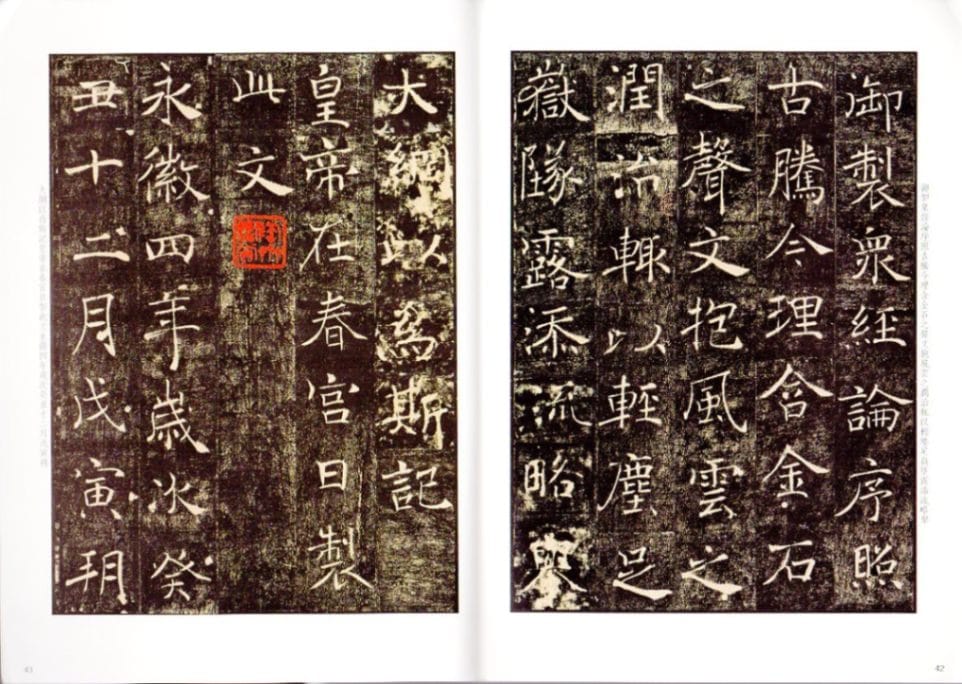 御製衆經論序照
古騰今理含金石
之聲文抱風雲之
潤治輒以輕塵足
嶽墜露添流略舉
42
大綱以為斯記
皇帝在春宮日製
此文
永徽四年歲次癸
丑十二月戊寅朔
43